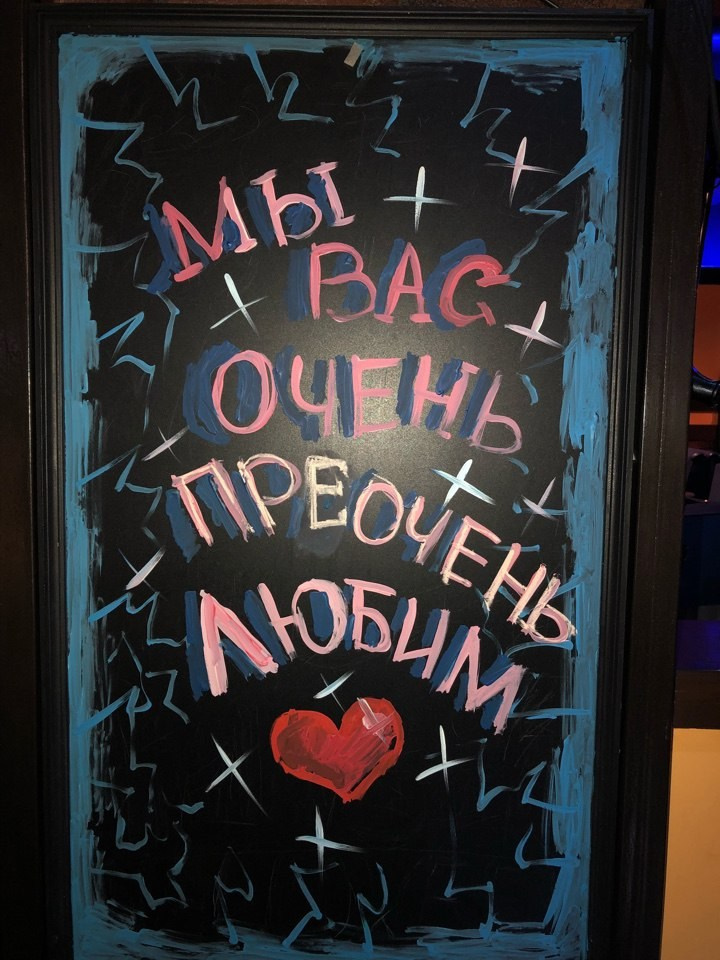 МЫ
ВАС
ОЧЕНЬ
ПРЕОЧЕНЬ
ЛЮБИМ